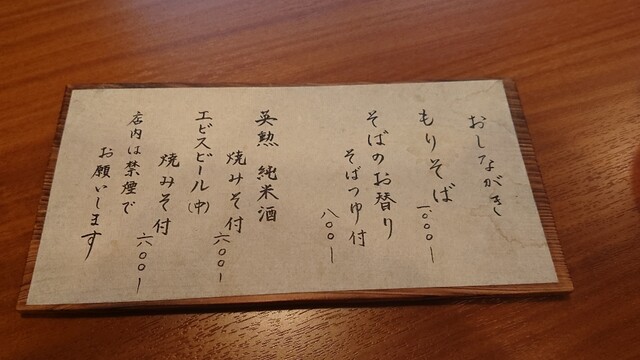 おしながき
もりそば 一〇〇〇ー
そばのお替り
そばつゆ付
八〇〇ー
英勲 純米酒
焼みそ付 六〇〇ー
エビスビール(中)
焼みそ付 六〇〇ー
店内は禁煙で
お願いします